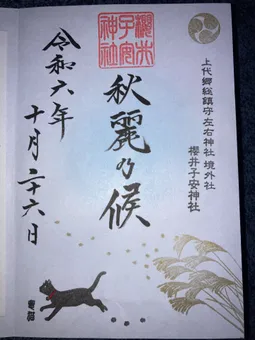 上代郷総鎮守左右神社 境外社
櫻井子安神社
櫻井
子安
神社
秋麗乃候
令和六年
十月二十六日